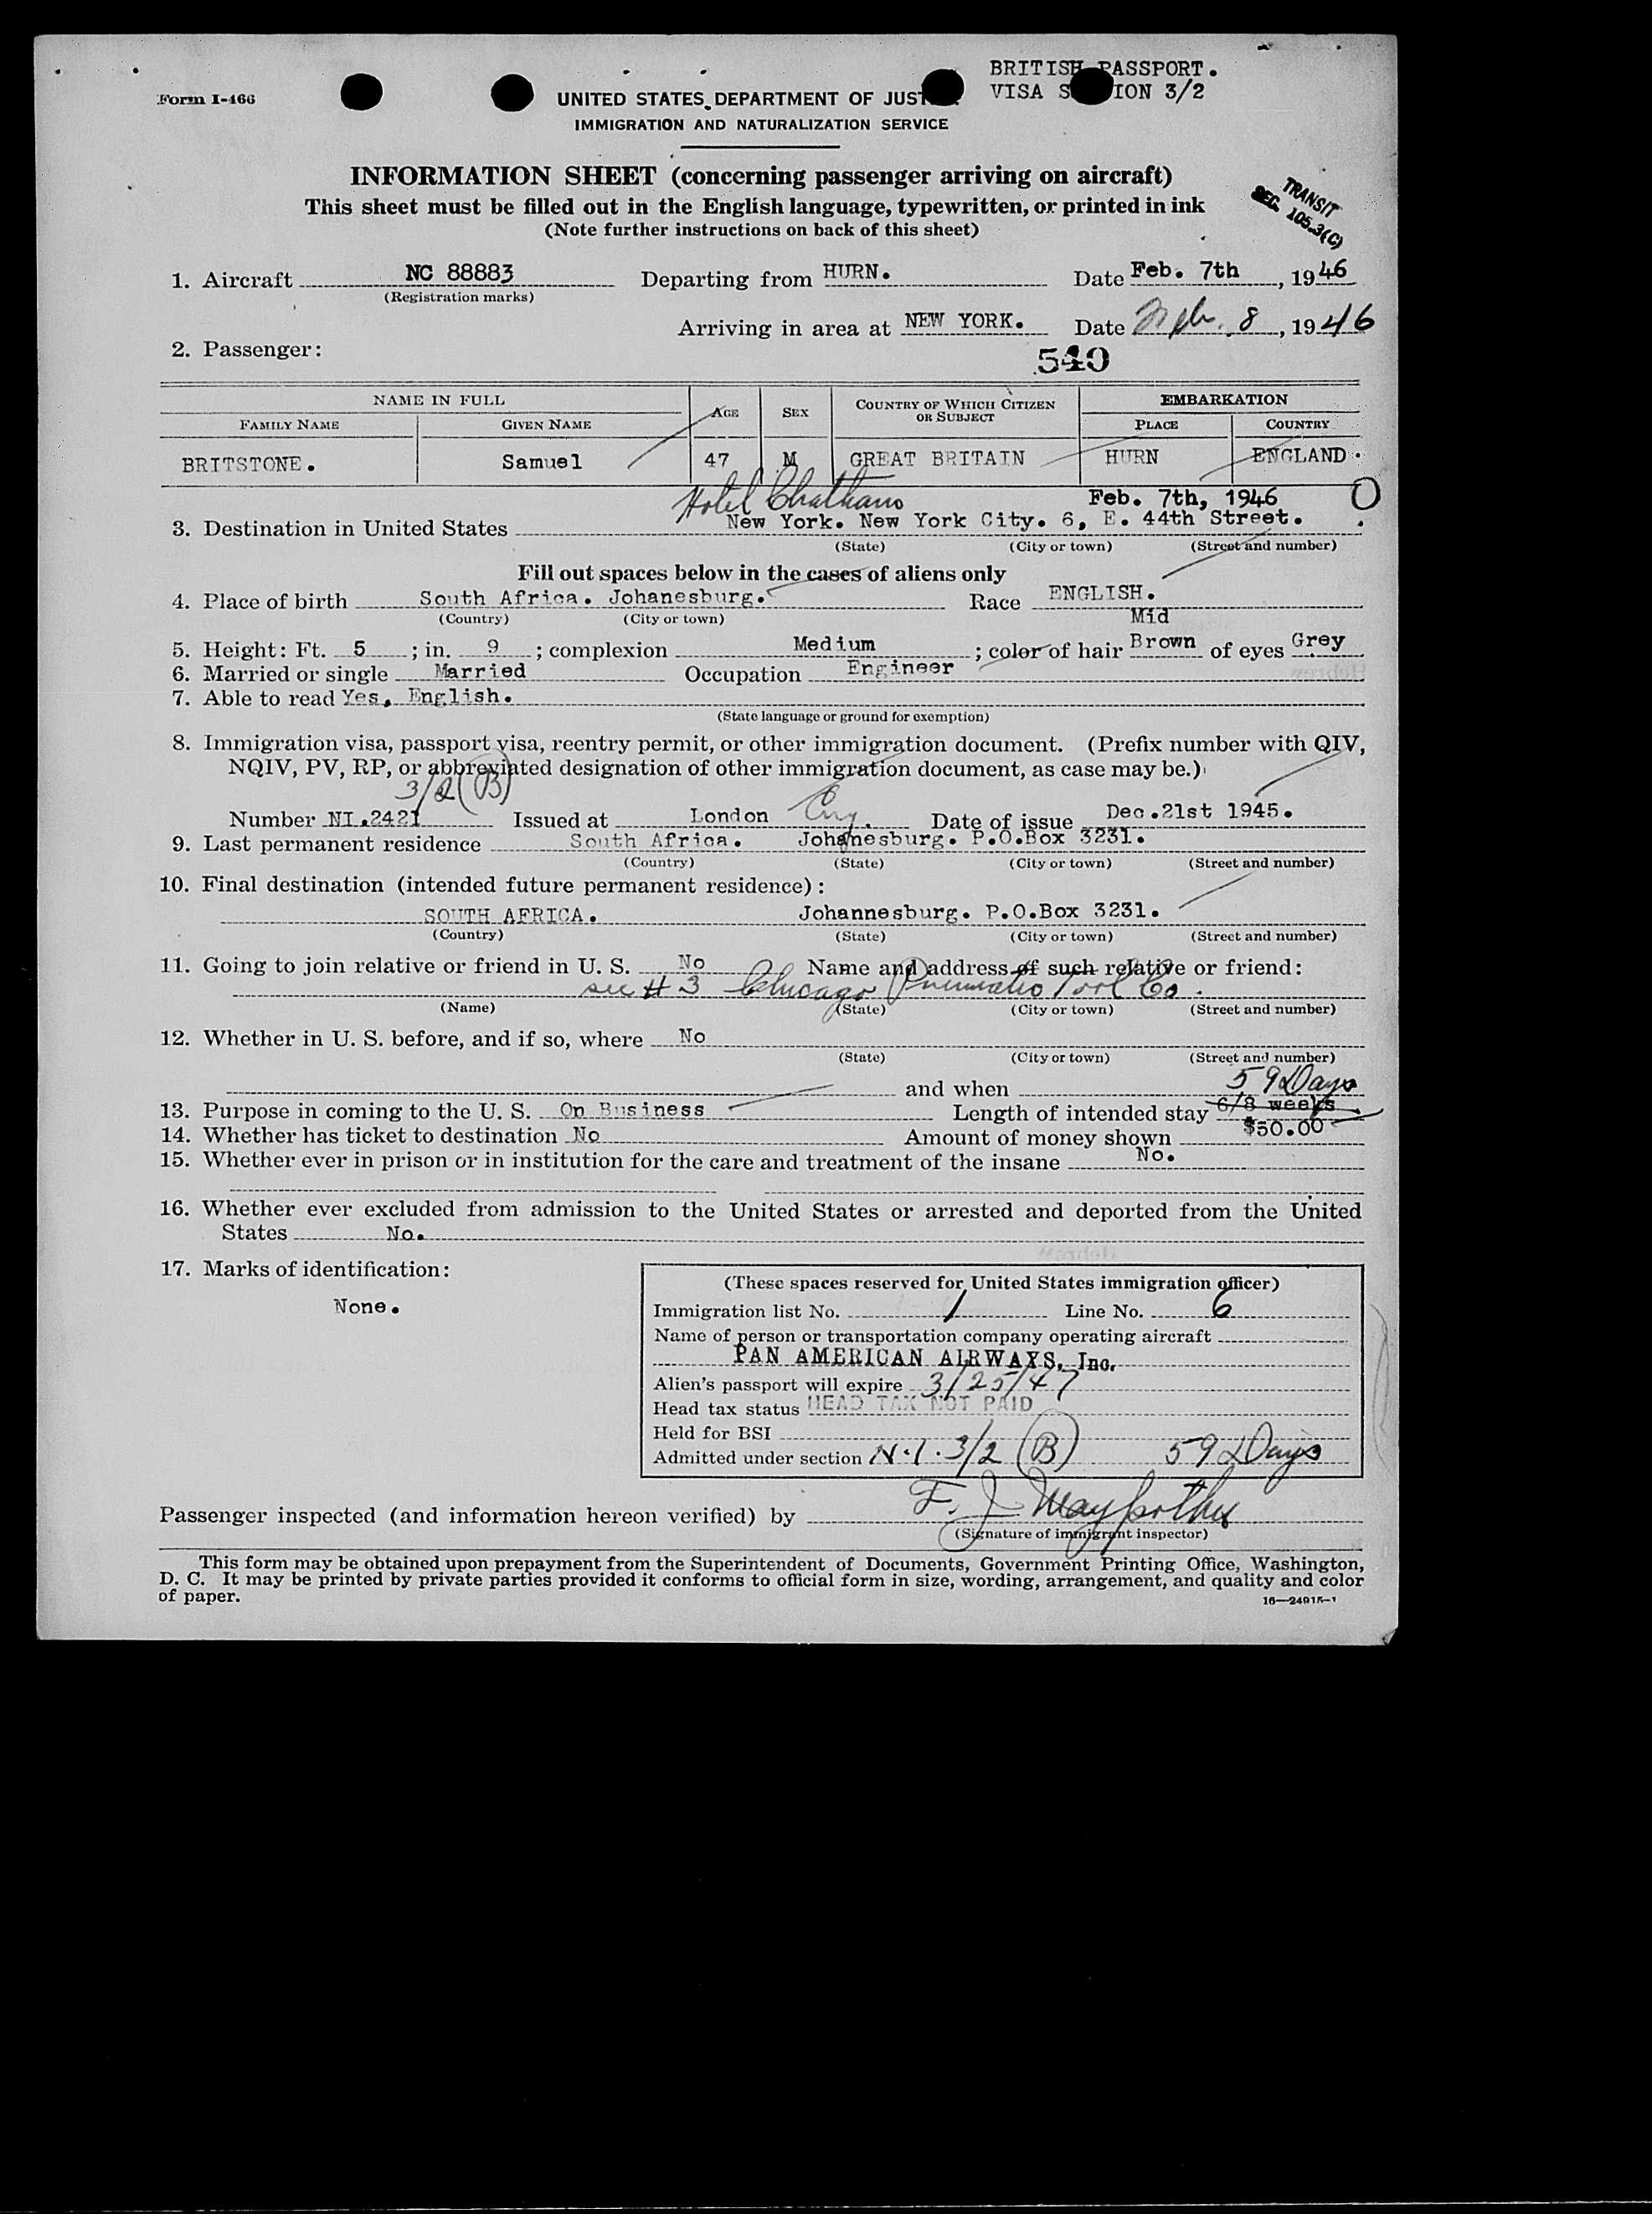 BRITISH PASSPORT.
Form I-466
UNITED STATES DEPARTMENT OF JUST
VISA S ION 3/2
IMMIGRATION AND NATURALIZATION SERVICE
INFORMATION SHEET (concerning passenger arriving on aircraft)
This sheet must be filled out in the English language, typewritten, or printed in ink
(Note further instructions on back of this sheet)
TRANSIT
SEC. 105.3(C)
1. Aircraft NC 88883 Departing from HURN. Date Feb. 7th, 1946
(Registration marks)
Arriving in area at NEW YORK. Date Feb. 8, 1946
2. Passenger:
540
NAME IN FULL AGE SEX COUNTRY OF WHICH CITIZEN OR SUBJECT EMBARKATION
FAMILY NAME GIVEN NAME PLACE COUNTRY
BRITSTONE. Samuel 47 M GREAT BRITAIN HURN ENGLAND.
Hotel Chatham Feb. 7th, 1946 O
3. Destination in United States New York. New York City. 6, E. 44th Street.
(State) (City or town) (Street and number)
Fill out spaces below in the cases of aliens only
4. Place of birth South Africa. Johanesburg. Race ENGLISH.
(Country) (City or town)
Mid
5. Height: Ft. 5; in. 9; complexion Medium; color of hair Brown of eyes Grey
6. Married or single Married Occupation Engineer
7. Able to read Yes, English.
(State language or ground for exemption)
8. Immigration visa, passport visa, reentry permit, or other immigration document. (Prefix number with QIV,
NQIV, PV, RP, or abbreviated designation of other immigration document, as case may be.)
3/2(B)
Number NI.2421 Issued at London Eng. Date of issue Dec.21st 1945.
9. Last permanent residence South Africa. Johannesburg. P.O.Box 3231.
(Country) (State) (City or town) (Street and number)
10. Final destination (intended future permanent residence):
SOUTH AFRICA. Johannesburg. P.O.Box 3231.
(Country) (State) (City or town) (Street and number)
11. Going to join relative or friend in U. S. No Name and address of such relative or friend:
see # 3 Chicago Pneumatic Tool Co.
(Name) (State) (City or town) (Street and number)
12. Whether in U. S. before, and if so, where No
(State) (City or town) (Street and number)
and when
59 Days
13. Purpose in coming to the U. S. On Business Length of intended stay 6/8 weeks
14. Whether has ticket to destination No Amount of money shown $50.00
15. Whether ever in prison or in institution for the care and treatment of the insane No.
16. Whether ever excluded from admission to the United States or arrested and deported from the United
States No.
17. Marks of identification:
None.
(These spaces reserved for United States immigration officer)
Immigration list No. 1 Line No. 6
Name of person or transportation company operating aircraft
PAN AMERICAN AIRWAYS, Inc.
Alien's passport will expire 3/25/47
Head tax status HEAD TAX NOT PAID
Held for BSI
Admitted under section N.I. 3/2 (B) 59 Days
Passenger inspected (and information hereon verified) by F. J.
(Signature of immigrant inspector)
This form may be obtained upon prepayment from the Superintendent of Documents, Government Printing Office, Washington,
D. C. It may be printed by private parties provided it conforms to official form in size, wording, arrangement, and quality and color
of paper.
16—24915-1